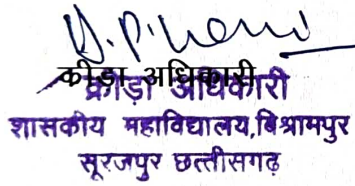 क्रीड़ा अधिकारी
क्रीड़ा अधिकारी
शासकीय महाविद्यालय, बिश्रामपुर
सूरजपुर छत्तीसगढ़